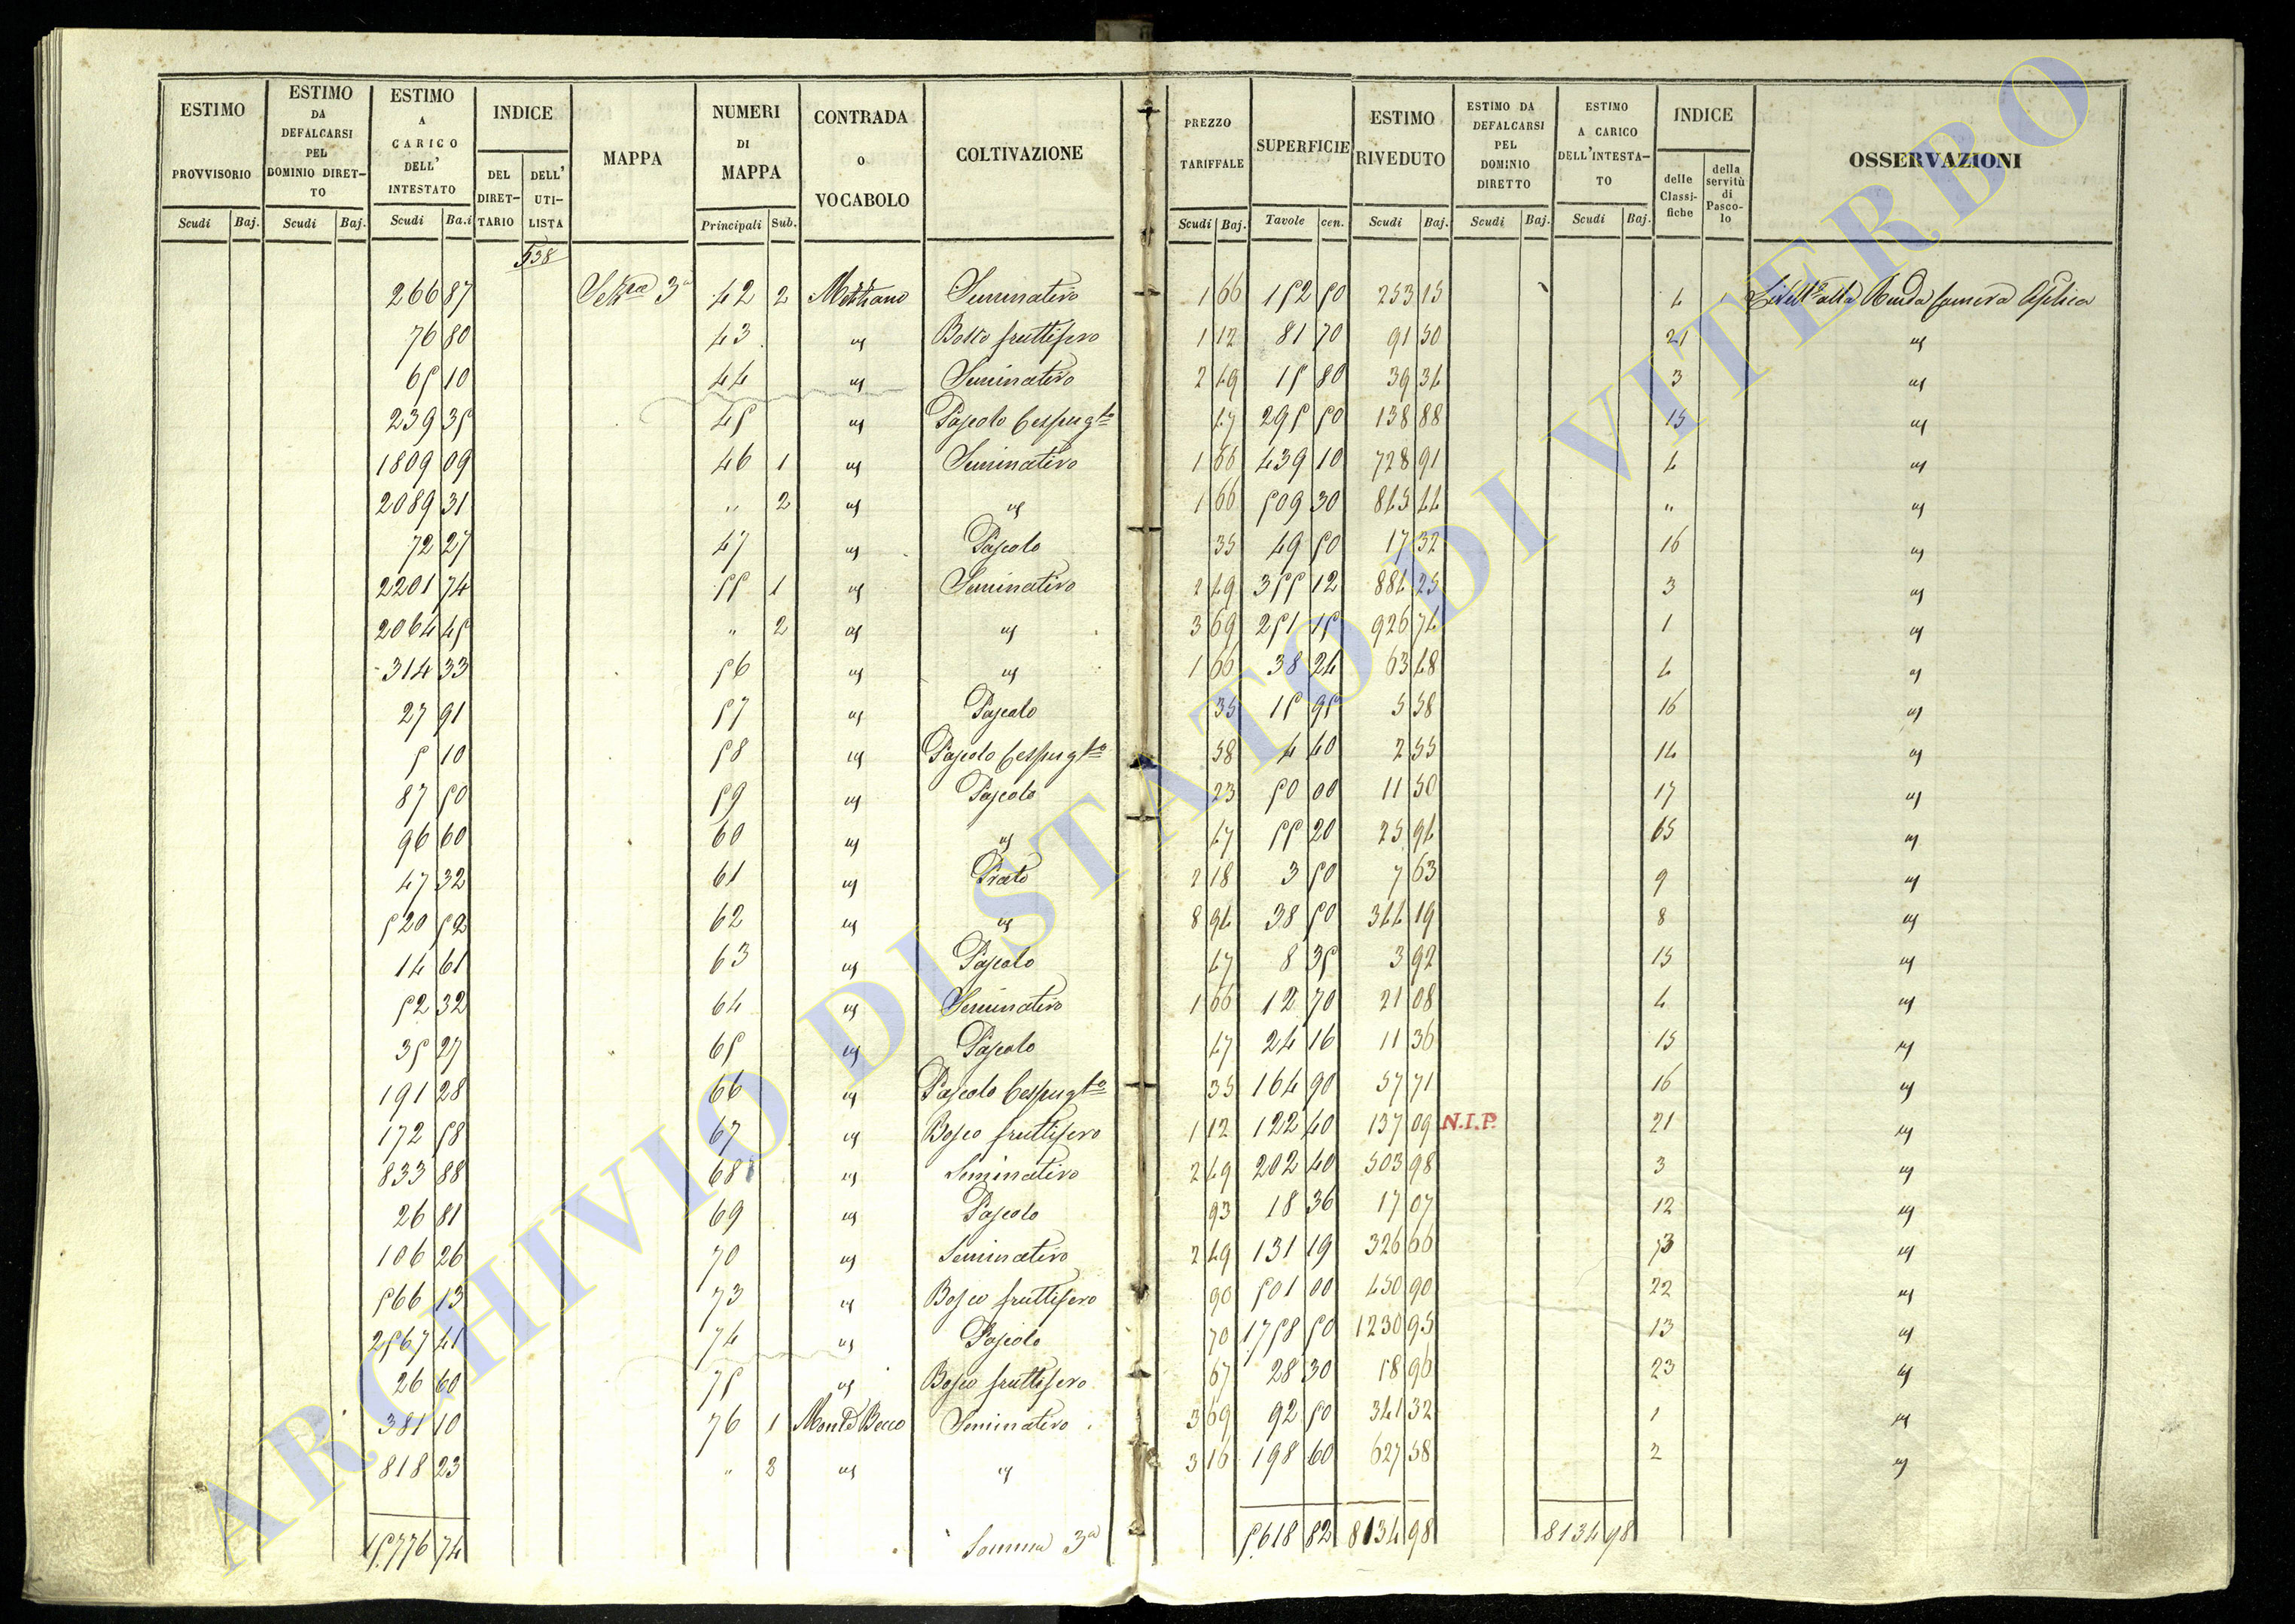 ESTIMO PROVVISORIO Scudi Baj.
ESTIMO DA DEFALCARSI PEL DOMINIO DIRET-TO Scudi Baj.
ESTIMO A CARICO DELL' INTESTATO Scudi Ba.i
INDICE DEL DIRET-TARIO DELL' UTI-LISTA
MAPPA
NUMERI DI MAPPA Principali Sub.
CONTRADA O VOCABOLO
COLTIVAZIONE
PREZZO TARIFFALE Scudi Baj.
SUPERFICIE Tavole cen.
ESTIMO RIVEDUTO Scudi Baj.
ESTIMO DA DEFALCARSI PEL DOMINIO DIRETTO Scudi Baj.
ESTIMO A CARICO DELL'INTESTA-TO Scudi Baj.
INDICE delle Classi-fiche della servitù di Pasco-lo
OSSERVAZIONI
538
266 87 3a 42 2 Mezzano Seminativo 1 66 152 50 253 15 4 alla Camera
76 80 43 " Bosco fruttifero 1 12 81 70 91 50 21 "
65 10 44 " Seminativo 2 49 15 80 39 34 3 "
239 35 45 " Pascolo Cespugto 47 295 50 138 88 15 "
1809 09 46 1 " Seminativo 1 66 439 10 728 91 4 "
2089 31 " 2 " " 1 66 509 30 845 44 " "
72 27 47 " Pascolo 35 49 50 17 32 16 "
2201 74 55 1 " Seminativo 2 49 355 12 884 25 3 "
2064 45 " 2 " " 3 69 251 15 926 74 1 "
314 33 56 " " 1 66 38 24 63 48 4 "
27 91 57 " Pascolo 35 15 95 5 58 16 "
5 10 58 " Pascolo Cespugto 58 4 40 2 55 14 "
87 50 59 " Pascolo 23 50 00 11 50 17 "
96 60 60 " " 47 55 20 25 94 65 "
47 32 61 " Prato 2 18 3 50 7 63 9 "
520 52 62 " " 8 94 38 50 344 19 8 "
14 61 63 " Pascolo 47 8 35 3 92 15 "
52 32 64 " Seminativo 1 66 12 70 21 08 4 "
35 27 65 " Pascolo 47 24 16 11 36 15 "
191 28 66 " Pascolo Cespugto 35 164 90 57 71 16 "
172 58 67 " Bosco fruttifero 1 12 122 40 137 09 N.I.P. 21 "
833 88 68 " Seminativo 2 49 202 40 503 98 3 "
26 81 69 " Pascolo 93 18 36 17 07 12 "
106 26 70 " Seminativo 2 49 131 19 326 66 3 "
566 13 73 " Bosco fruttifero 90 501 00 450 90 22 "
2567 41 74 " Pascolo 70 1758 50 1230 95 13 "
26 60 75 " Bosco fruttifero 67 28 30 18 96 23 "
381 10 76 1 Monte Becco Seminativo 3 69 92 50 341 32 1 "
818 23 " 3 " " 3 16 198 60 627 58 2 "
15776 74 Somma 3a 5618 82 8134 98 8134 98
ARCHIVIO DI STATO DI VITERBO